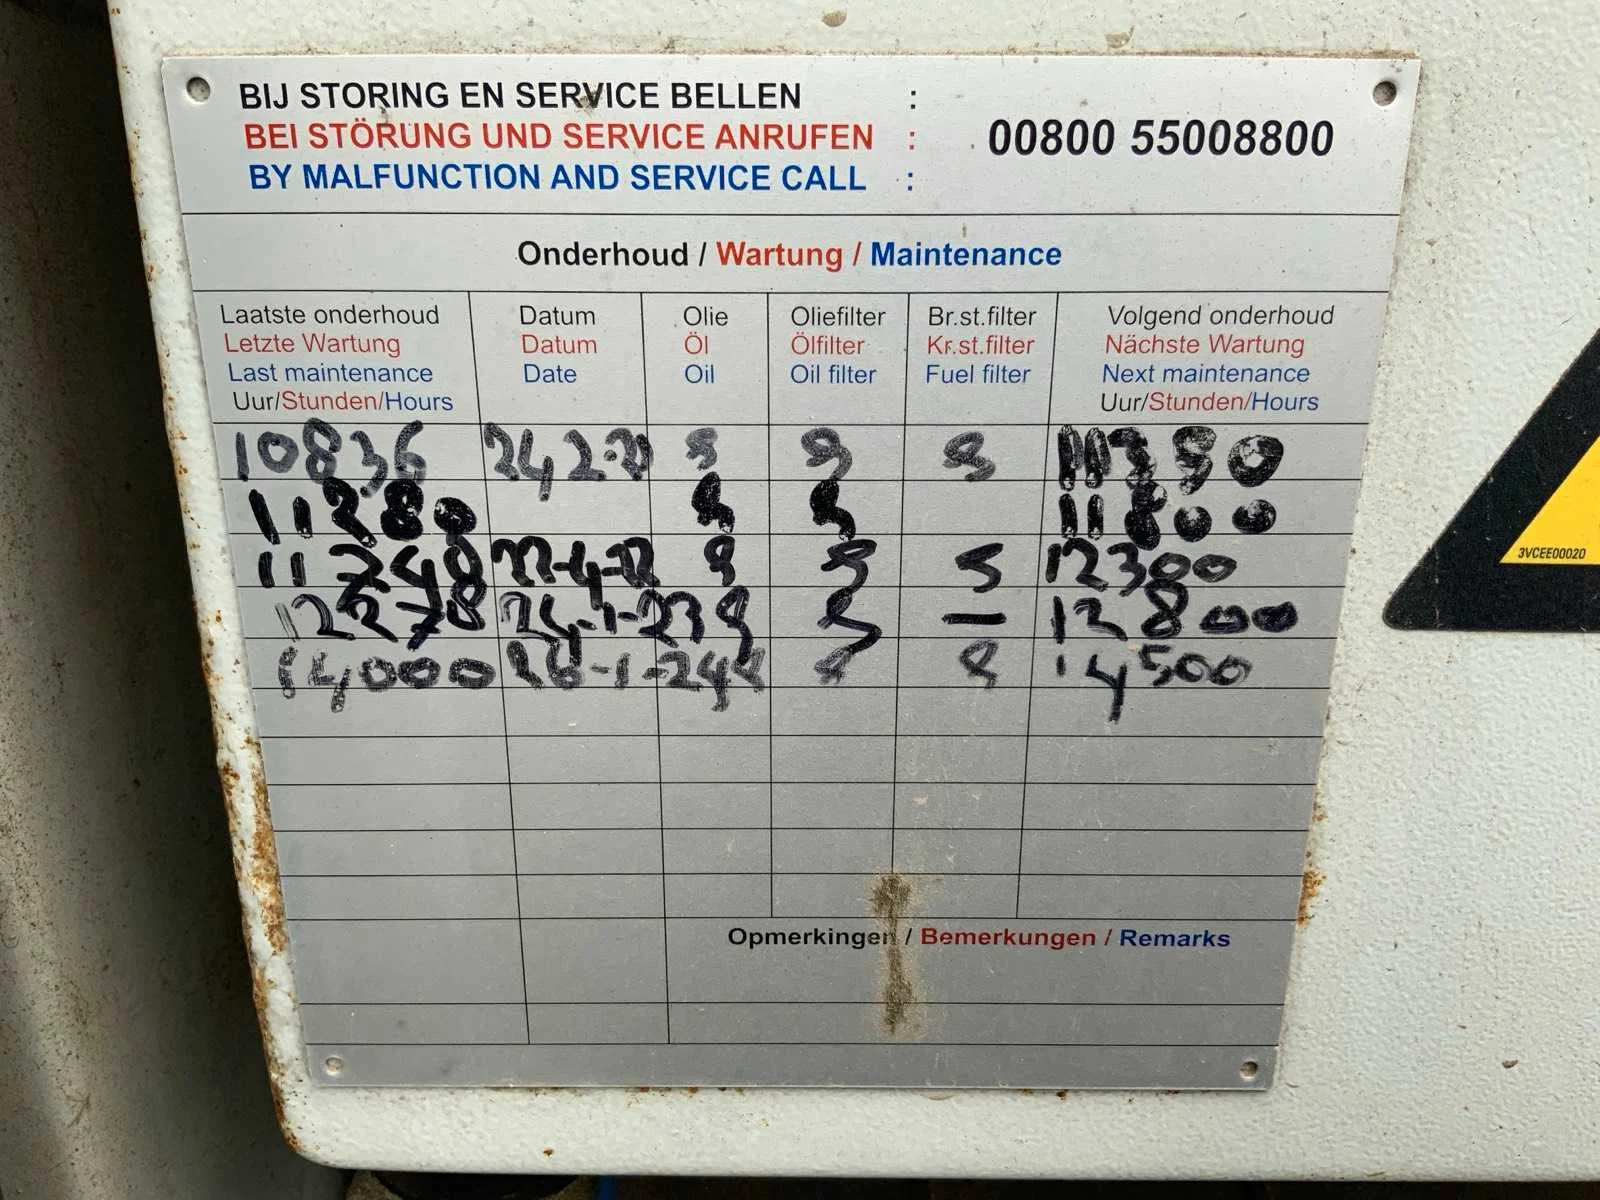 BIJ STORING EN SERVICE BELLEN :
BEI STÖRUNG UND SERVICE ANRUFEN : 00800 55008800
BY MALFUNCTION AND SERVICE CALL :
Onderhoud / Wartung / Maintenance
Laatste onderhoud Datum Olie Oliefilter Br.st.filter Volgend onderhoud
Letzte Wartung Datum Öl Ölfilter Kr.st.filter Nächste Wartung
Last maintenance Date Oil Oil filter Fuel filter Next maintenance
Uur/Stunden/Hours Uur/Stunden/Hours
10836 11350
11280 11800
11740 22-4-22 12300
12278 24-1-23 — 12800
14000 26-1-24 14500
Opmerkingen / Bemerkungen / Remarks
3VCEE00020